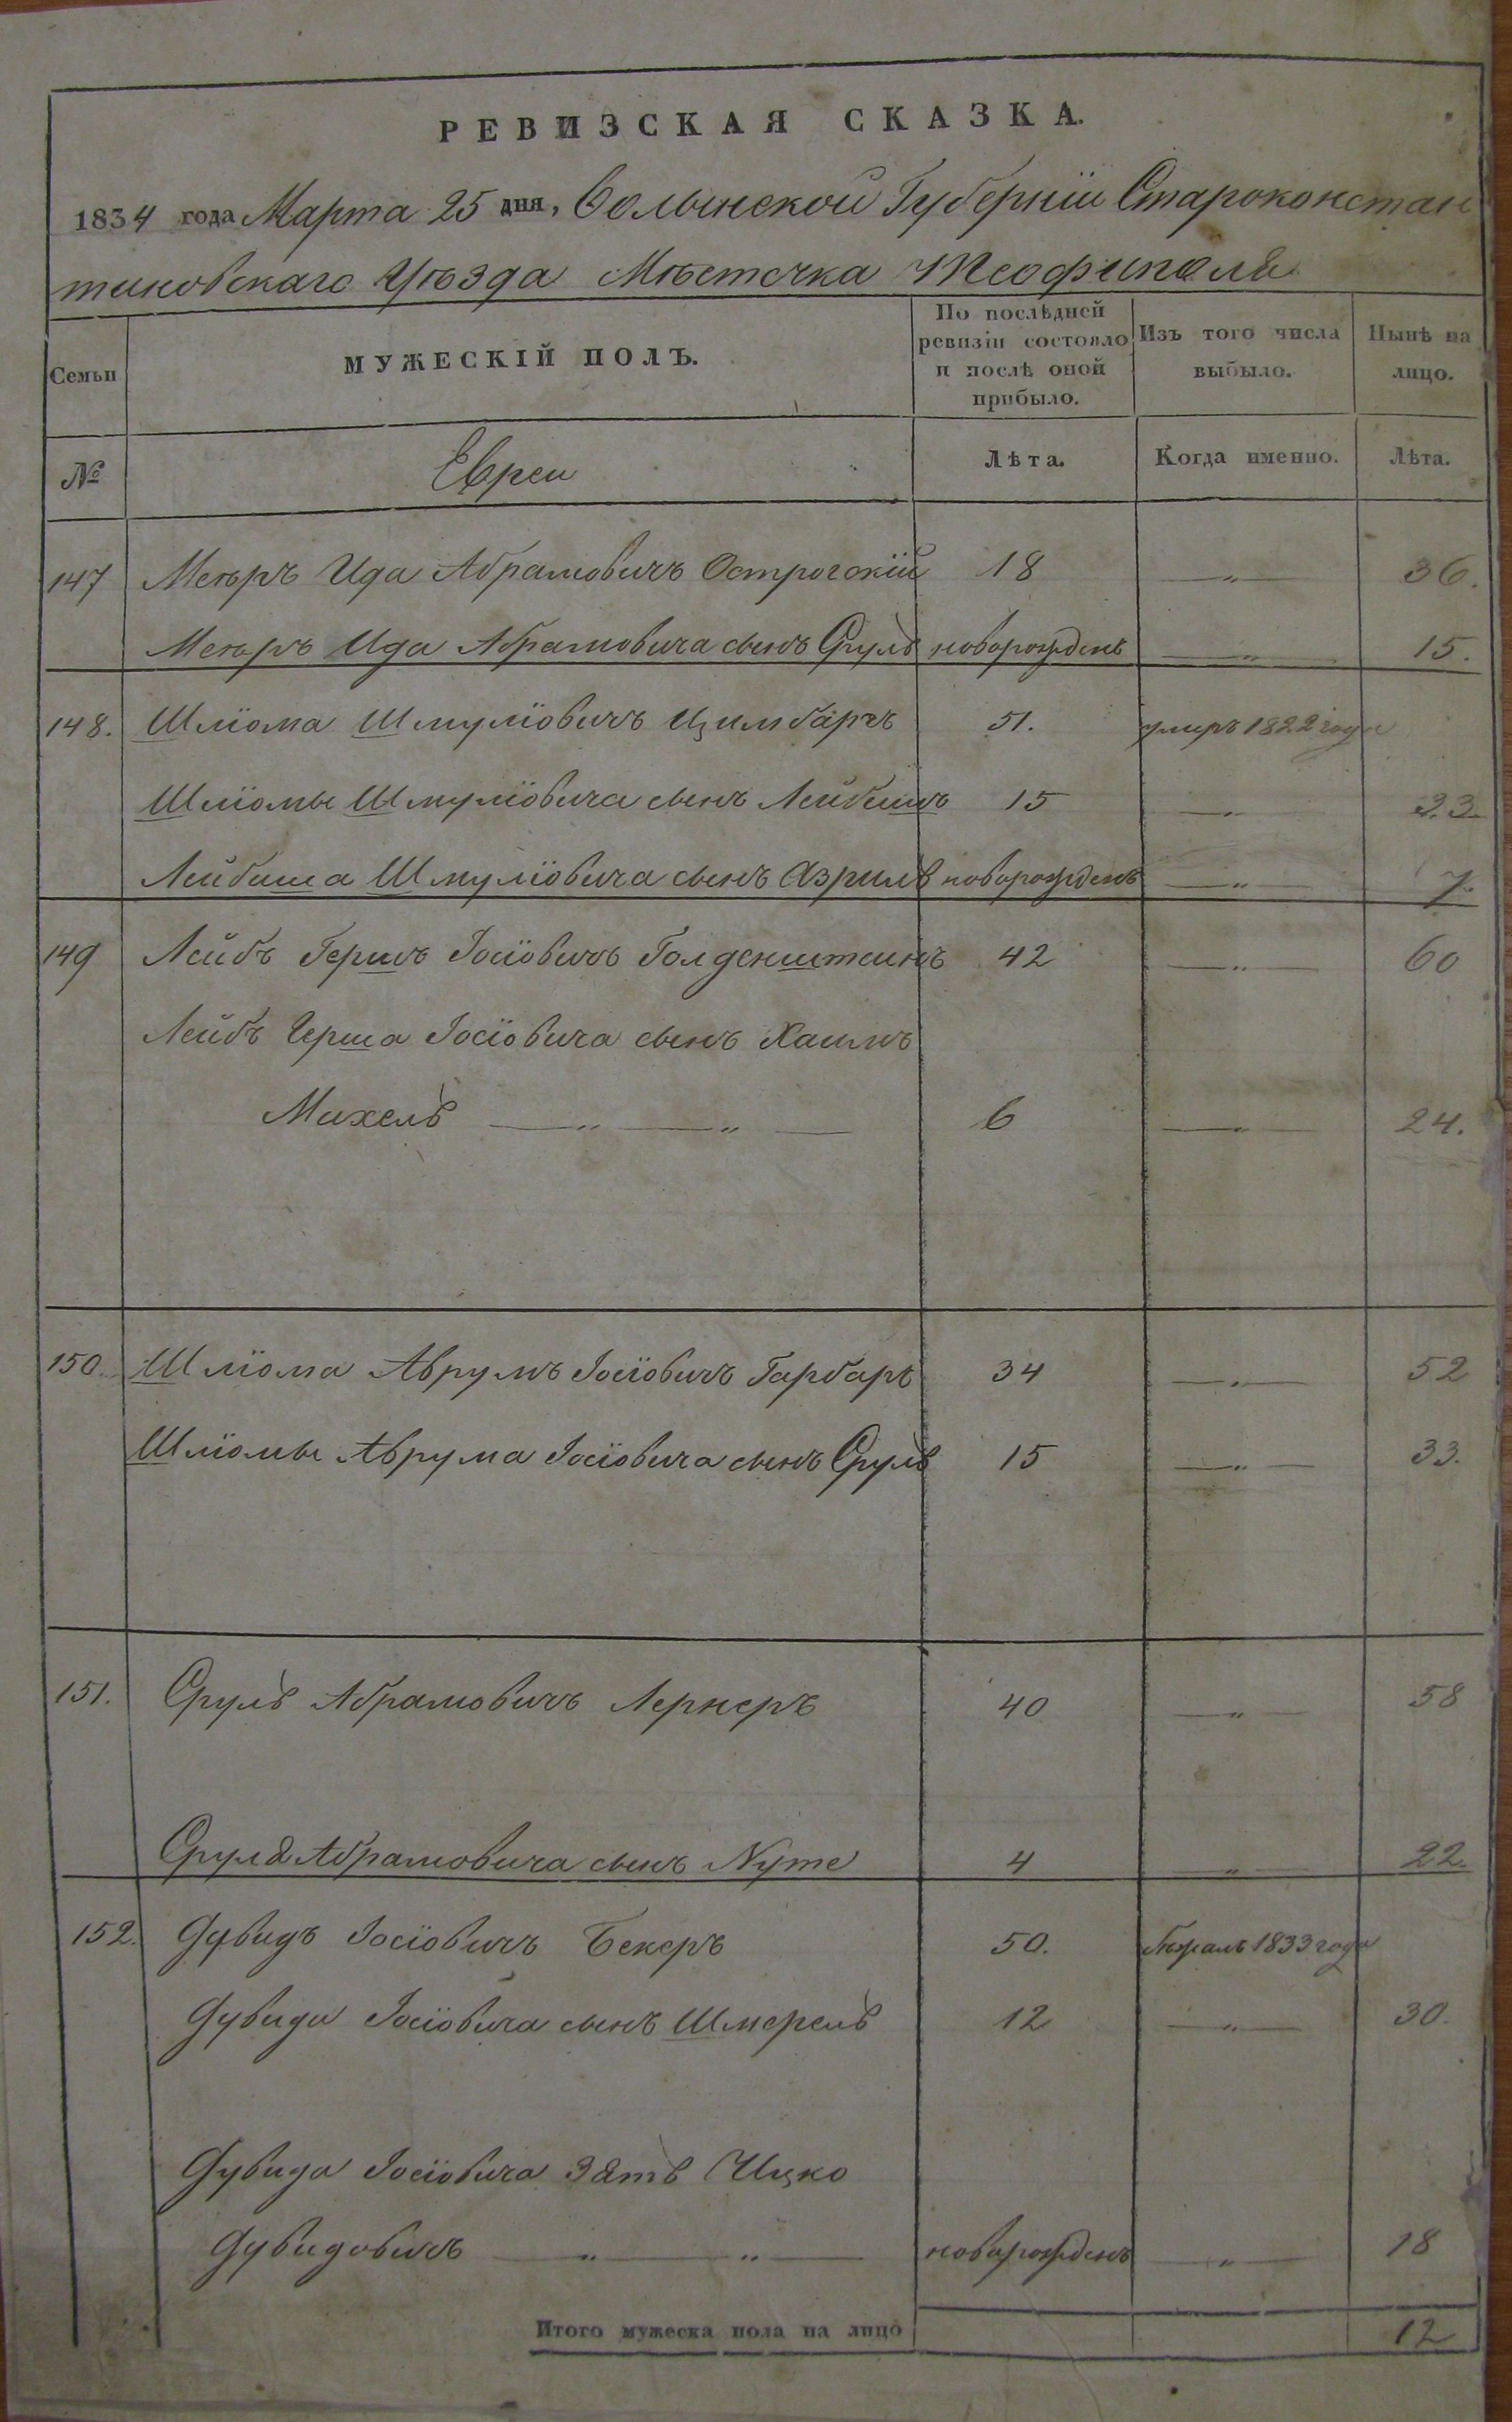 РЕВИЗСКАЯ СКАЗКА.
1834 года Марта 25 дня, Волынской Губерніи Староконстан
тиновскаго Уѣзда Мѣстечка Теофиполя
Семьи
МУЖЕСКІЙ ПОЛЪ.
По послѣдней ревизіи состояло и послѣ оной прибыло.
Изъ того числа выбыло.
Нынѣ на лицо.
№ Евреи Лѣта. Когда именно. Лѣта.
147 Мееръ Ида Абрамовичъ Острогскій 18 — „ — 36.
Мееръ Ида Абрамовича сынъ Сруль новорожденъ — „ — 15.
148. Шліома Шмуліовичъ Цимбаръ 51. умеръ 1822 года
Шліомы Шмуліовича сынъ Лейбишъ 15 — „ — 33.
Лейбиша Шмуліовича сынъ Азриль новорожденъ — „ — 7.
149 Лейбъ Гершъ Іосіовичъ Голденштеинъ 42 — „ — 60
Лейбъ Герша Іосіовича сынъ Хаимъ
Михель — „ — „ — 6 — „ — 24.
150. Шліома Аврумъ Іосіовичъ Гарбаръ 34 — „ — 52
Шліомы Аврума Іосіовича сынъ Сруль 15 — „ — 33.
151. Сруль Абрамовичъ Лернеръ 40 — „ — 58
Сруля Абрамовича сынъ Нуте 4 — „ — 22.
152. Дувидъ Іосіовичъ Бекеръ 50. бѣжалъ 1833 года
Дувида Іосіовича сынъ Шмерель 12 — „ — 30.
Дувида Іосіовича зять Ицко
Дувидовичъ — „ — „ — новорожденъ — „ — 18
Итого мужеска пола на лицо 12